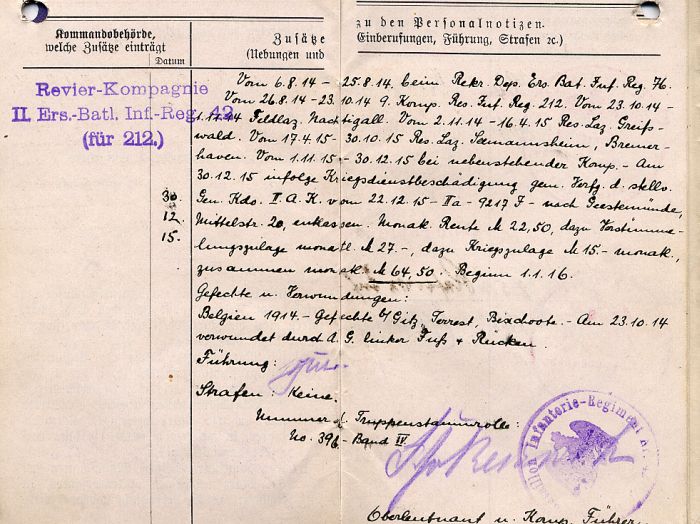 Kommandobehörde,
welche Zusätze einträgt
Datum
Zusätze zu den Personalnotizen.
(Uebungen und Einberufungen, Führung, Strafen ꝛc.)
Revier-Kompagnie
II. Ers.-Batl. Inf.-Reg. 42
(für 212.)
30.
12.
15.
Vom 6.8.14 - 25.8.14. beim Rekr. Dep. Ers. Bat. Inf. Reg. 76.
Vom 26.8.14 - 23.10.14 9. Komp. Res. Inf. Reg. 212. Vom 23.10.14 -
1.11.14 Feldlaz. Nachtigall. Vom 2.11.14 - 16.4.15 Res. Laz. Greifs-
wald. Vom 17.4.15 - 30.10.15 Res. Laz. Seemannsheim, Bremer-
haven. Vom 1.11.15 - 30.12.15 bei nebenstehender Komp. - Am
30.12.15 infolge Kriegsdienstbeschädigung gem. Verfg. d. stellv.
Gen. Kdo. II. A. K. vom 22.12.15 - IIa - 9217 F - nach Geestemünde,
Mittelstr. 20, entlassen. Monatl. Rente M 22,50, dazu Verstümme-
lungszulage monatl. M 27.-, dazu Kriegszulage M 15.- monatl.,
zusammen monatl. M 64,50. Beginn 1.1.16.
Gefechte u. Verwundungen:
Belgien 1914 - Gefechte b/ Gitz, Terrest, Bixchoote. - Am 23.10.14
verwundet durch A. G. linker Fuß & Rücken.
Führung: gut.
Strafen: Keine.
Nummer d. Truppenstammrolle:
No. 396 - Band IV
Infanterie-Regiment
Oberleutnant u. Komp. Führer